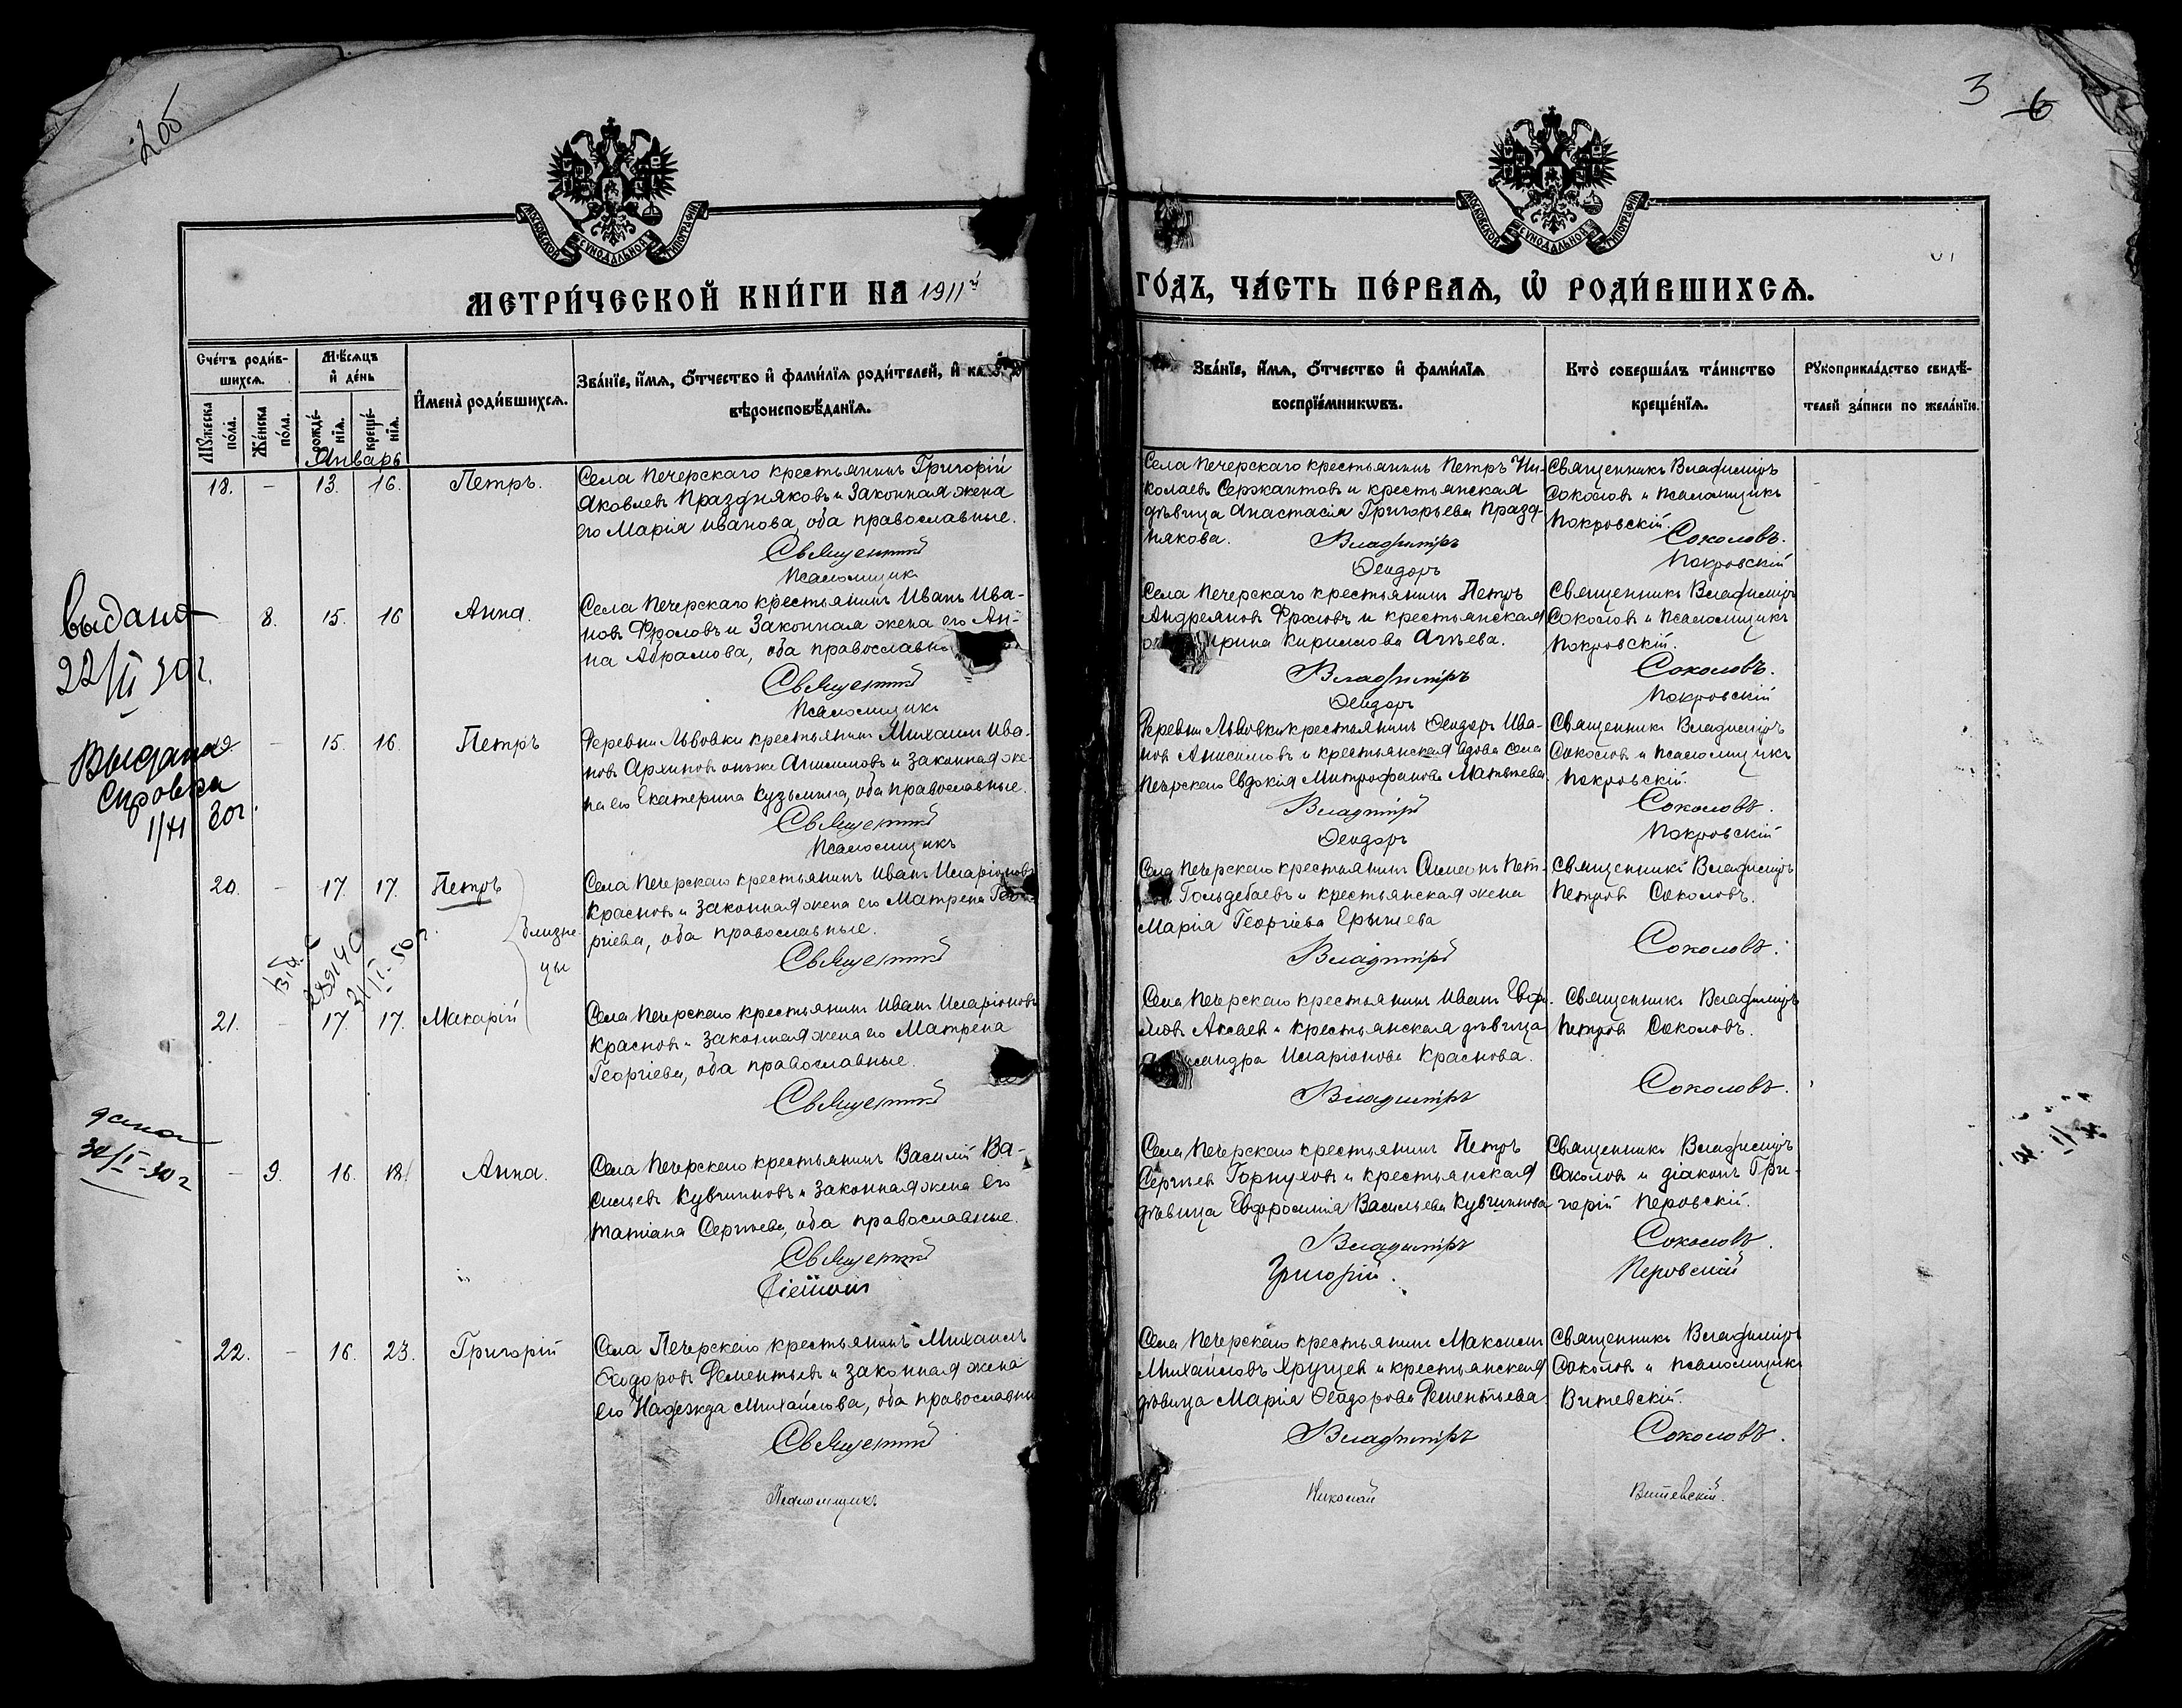 2об
3 6
МОСКОВСКОЙ СѴНОДАЛЬНОЙ ТИПОГРАФІИ
МОСКОВСКОЙ СѴНОДАЛЬНОЙ ТИПОГРАФІИ
МЕТРИ́ЧЕСКОЙ КНИ́ГИ НА 1911й
ГО́ДЪ, ЧА́СТЬ ПЕ́РВАѦ, Ѡ҆ РОДИ́ВШИХСѦ.
Сче́тъ роди́в-
шихсѧ.
Мѣ́сѧцъ
и҆ де́нь
Мꙋ́жеска
по́ла.
Же́нска
по́ла.
рожде́-
нїѧ.
креще́-
нїѧ.
И҆мена̀ роди́вшихсѧ.
Зва́нїе, и҆́мѧ, ѻ҆́тчество и҆ фами́лїѧ роди́телей, и҆
вѣроисповѣ́данїѧ.
Зва́нїе, и҆́мѧ, ѻ҆́тчество и҆ фами́лїѧ
воспрїе́мникѡвъ.
Кто̀ соверша́лъ та́инство
креще́нїѧ.
Рꙋкоприкла́дство свидѣ́-
телей за́писи по жела́нїю.
Январь
18. - 13. 16. Петръ.
Села Печерскаго крестьянинъ Григорій
Яковлевъ Праздняковъ и законная жена
его Марія Иванова, оба православные.
Священникъ
Псаломщикъ
Села Печерскаго крестьянинъ Петръ Ни-
колаевъ Сержантовъ и крестьянская
дѣвица Анастасія Григорьева Празд-
някова.
Владиміръ
Ѳеодоръ
Священникъ Владиміръ
Соколовъ и псаломщикъ
Покровскій.
Соколовъ.
Покровскій
выдана
22/II 30г.
8. 15. 16 Анна.
Села Печерскаго крестьянинъ Иванъ Ива-
новъ Фроловъ и законная жена его Ан-
на Абрамова, оба православн
Священникъ
Псаломщикъ
Села Печерскаго крестьянинъ Петръ
Андреяновъ Фроловъ и крестьянская
Ирина Кириллова Агѣева.
Владиміръ
Ѳеодоръ
Священникъ Владиміръ
Соколовъ и псаломщикъ
Покровскій.
Соколовъ.
Покровскій
Выдана
Справка
30г.
- 15. 16. Петръ
Деревни Львовки крестьянинъ Михаилъ Ива-
новъ Архиповъ онъже Анисимовъ и законная же-
на его Екатерина Кузьмина, оба православные.
Священникъ
Псаломщикъ
Деревни Львовки крестьянинъ Ѳеодоръ Ива-
новъ Анисимовъ и крестьянская вдова села
Печерскаго Евдокія Митрофанова Матвѣева
Владиміръ
Ѳеодоръ
Священникъ Владиміръ
Соколовъ и псаломщикъ
Покровскій.
Соколовъ.
Покровскій
20. - 17. 17. Петръ
близне-
цы
Села Печерскаго крестьянинъ Иванъ Иларіоновъ
Красновъ и законная жена его Матрена Гео-
ргіева, оба православные.
Священникъ
Села Печерскаго крестьянинъ Симеонъ Пет-
Гольдебаевъ и крестьянская жена
Марія Георгіева Ерышева
Владиміръ
Священникъ Владиміръ
Петровъ Соколовъ.
Соколовъ.
21. - 17. 17. Макарій
Села Печерскаго крестьянинъ Иванъ Иларіоновъ
Красновъ и законная жена его Матрена
Георгіева, оба православные.
Священникъ
Села Печерскаго крестьянинъ Иванъ
Аксаевъ и крестьянская дѣвица
Иларіонова Краснова.
Владиміръ
Священникъ Владиміръ
Петровъ Соколовъ.
Соколовъ.
дана
- 9. 16. Анна.
Села Печерскаго крестьянинъ Василій Ва-
сильевъ Кувшиновъ и законная жена его
Татіана Сергѣева, оба православные.
Священникъ
Діаконъ
Села Печерскаго крестьянинъ Петръ
Сергѣевъ Горнуховъ и крестьянская
дѣвица Евфросинія Васильева Кувшинова
Владиміръ
Григорій.
Священникъ Владиміръ
Соколовъ и діаконъ Гри-
горій Перовскій.
Соколовъ.
Перовскій
22. - 16. 23. Григорій
Села Печерскаго крестьянинъ Михаилъ
Ѳеодоровъ Дементьевъ и законная жена
его Надежда Михайлова, оба православны
Священникъ
Псаломщикъ
Села Печерскаго крестьянинъ Максимъ
Михайловъ Хрущевъ и крестьянская
дѣвица Марія Ѳеодорова Дементьева.
Владиміръ
Николай
Священникъ Владиміръ
Соколовъ и псаломщикъ
Витевскій.
Соколовъ.
Витевскій.